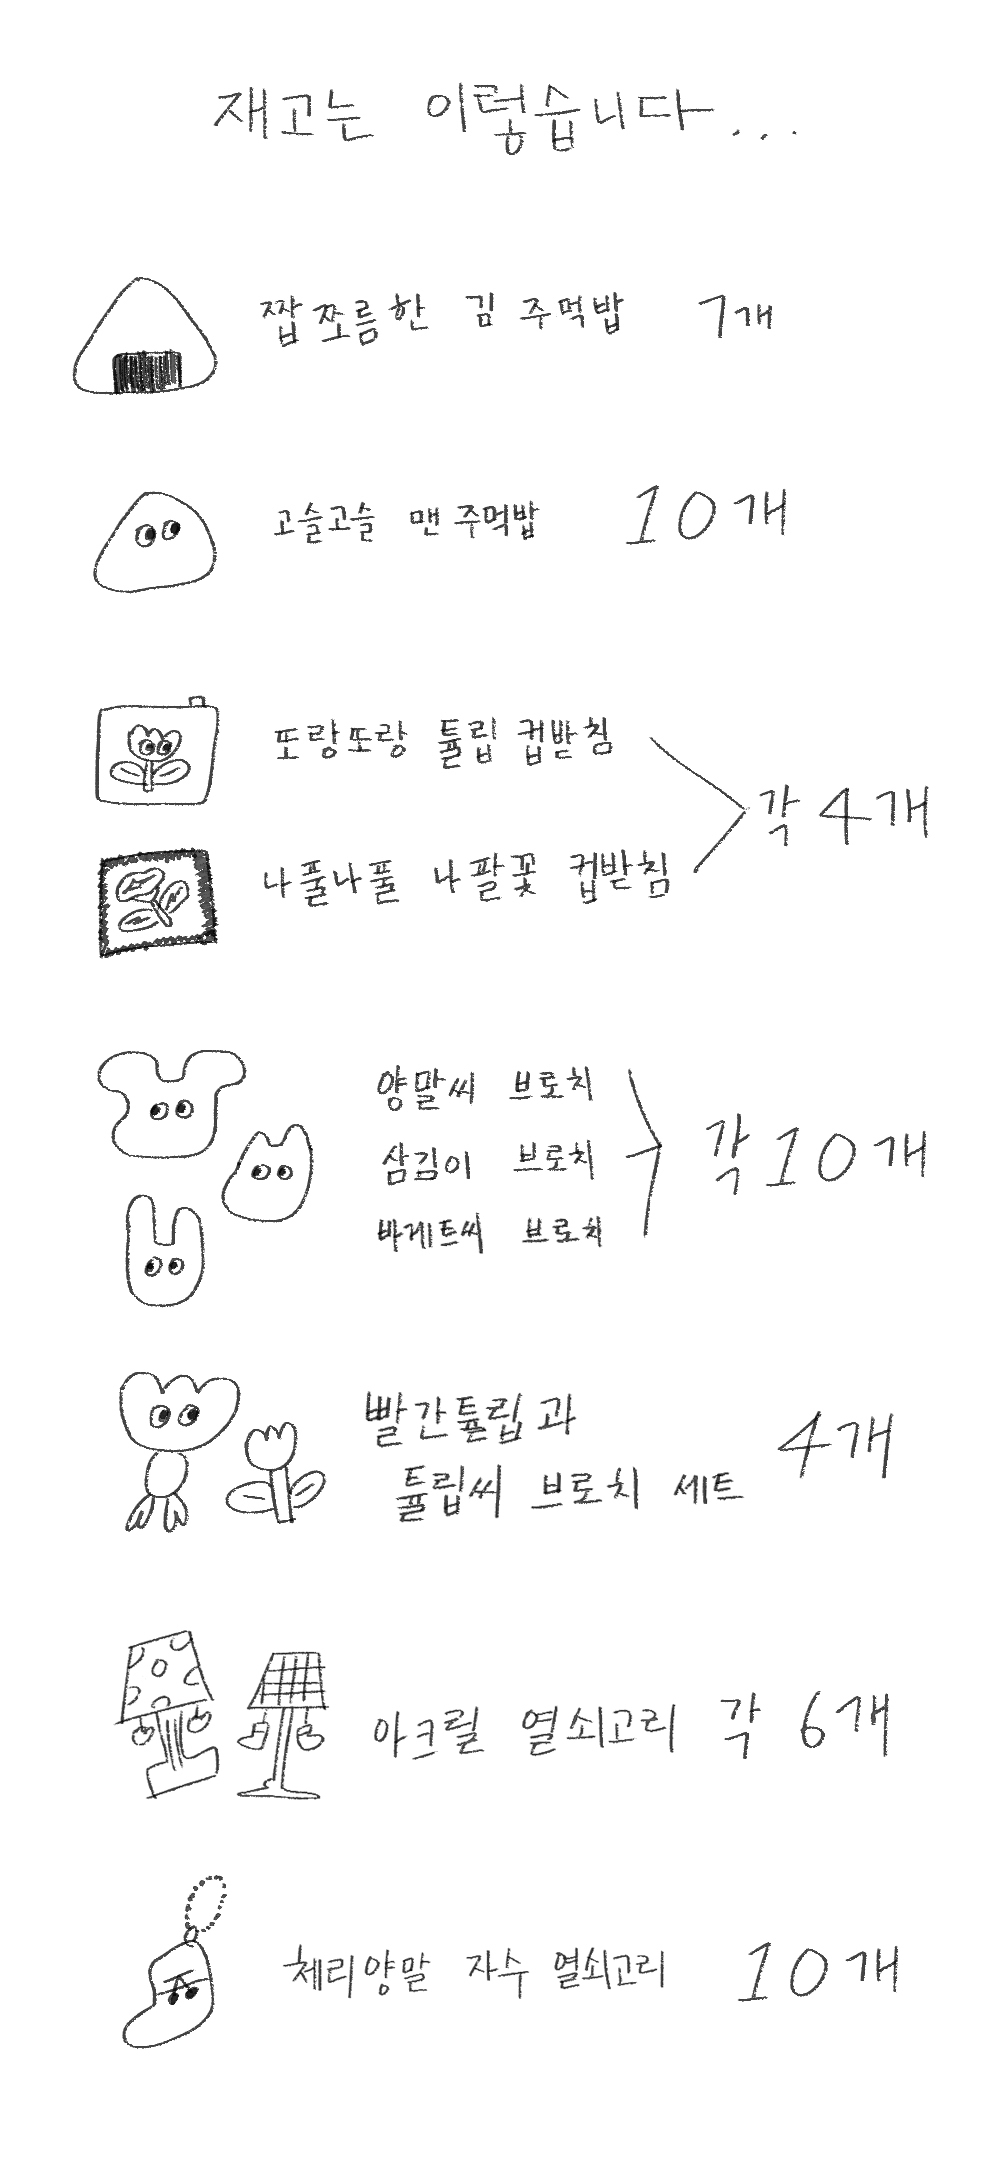 재고는 이렇습니다...
짭쪼름한 김 주먹밥 7개
고슬고슬 맨 주먹밥 10개
또랑또랑 튤립 컵받침
각 4개
나풀나풀 나팔꽃 컵받침
양말씨 브로치
삼김이 브로치 각 10개
바게트씨 브로치
빨간튤립과
튤립씨 브로치 세트 4개
아크릴 열쇠고리 각 6개
체리양말 자수 열쇠고리 10개